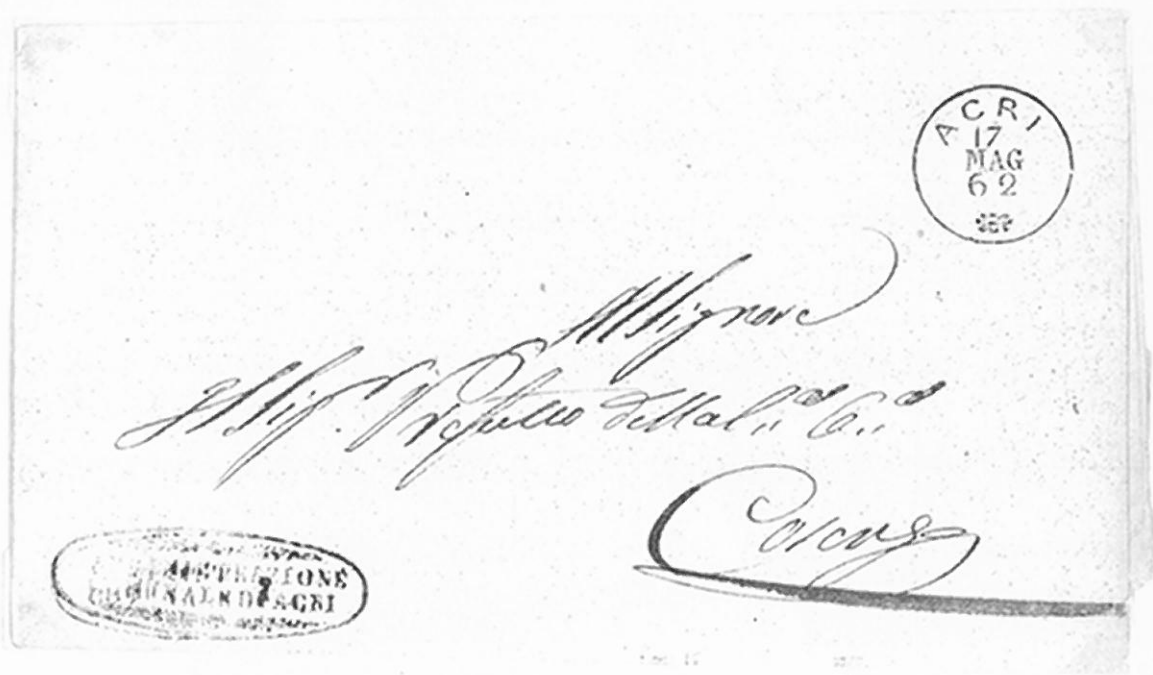 ACRI
17
MAG
62
Al Signore
Il Sig.r Prefetto della C.a C.a
Cosenza
AMMINISTRAZIONE
COMUNALE DI ACRI